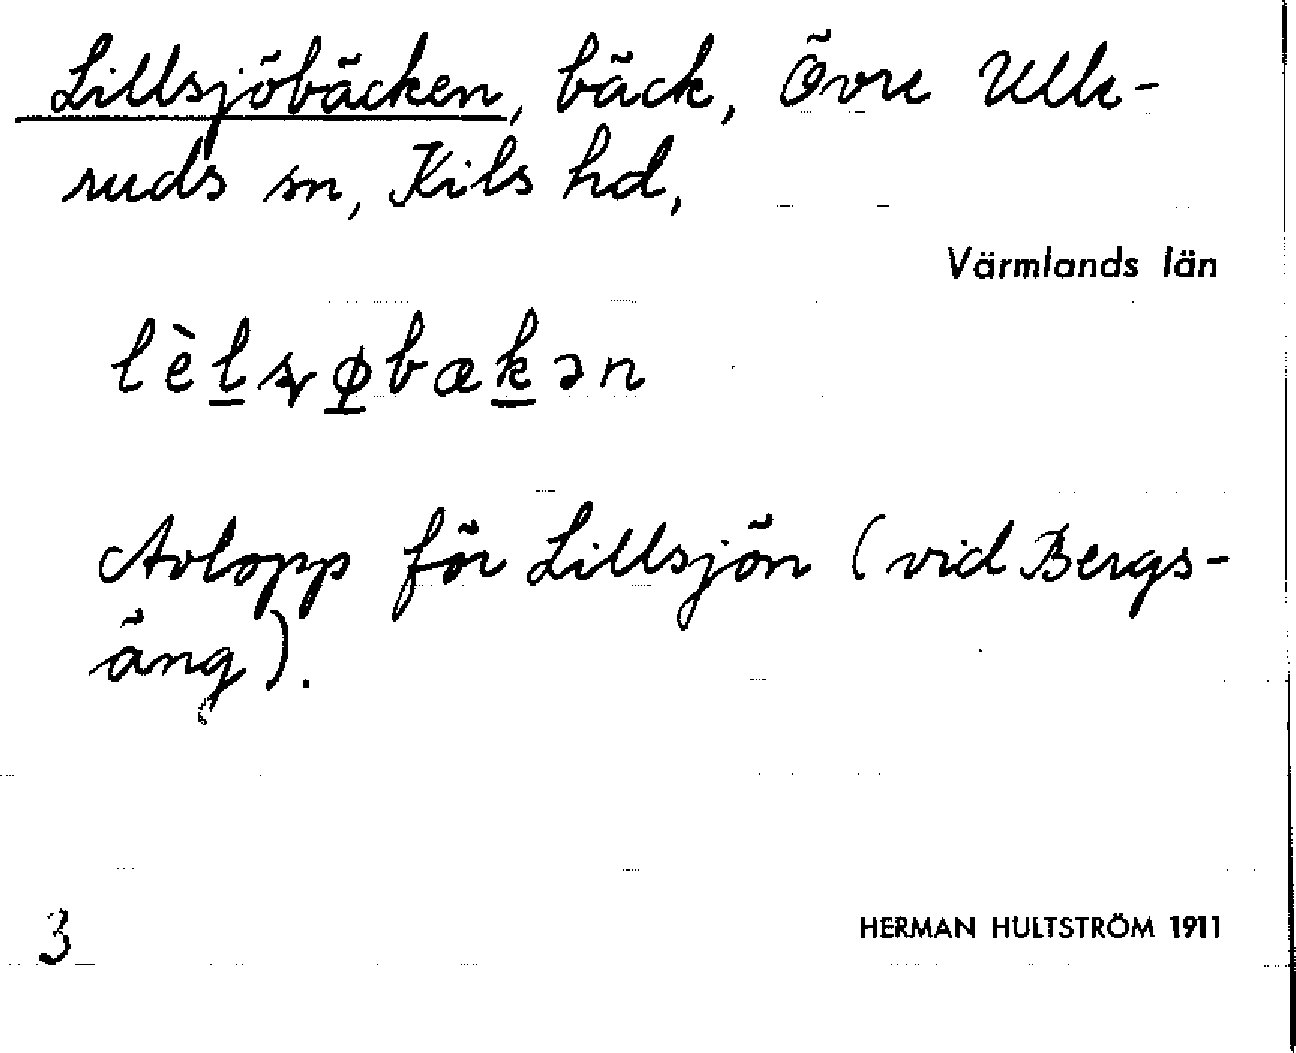 Lillsjöbäcken, bäck, Övre Ulle-
ruds sn, Kils hd,
Värmlands län
lèl̲ꞩø̲bæk̲ən
Avlopp för Lillsjön (vid Bergs-
äng).
3
HERMAN HULTSTRÖM 1911